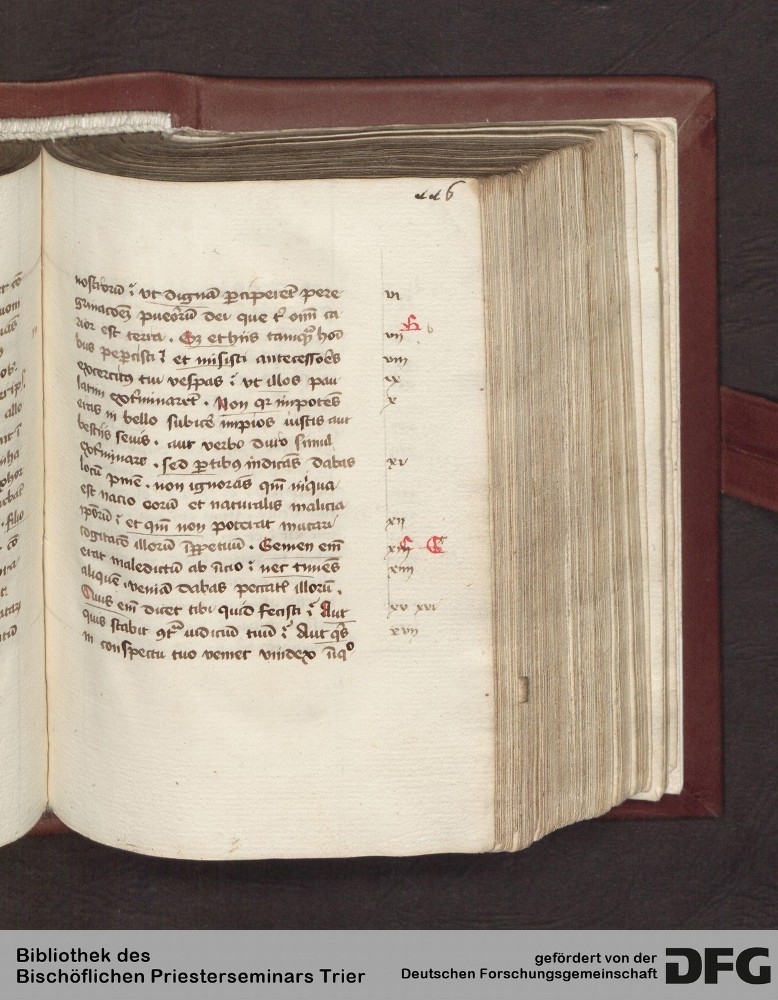 116
nostrorū ⁊ ut dignā ꝑciperēt pere
grinacōeȝ pueōrū dei que t̄ oīm ca
rior est terra . Sȝ et hiis tamqȝ hoī
bus peꝑcisti ⁊ et misisti antecessoēs
exercitꝰ tui vespas ⁊ ut illos pau
latim exſminarēt . Non qr impotēs
eras in bello subicē impios iustis aut
bestiis sevis . aut verbo duro simul
exſminare . sed ꝑtibꝰ indicās dabas
locū pnīe . non ignorās qm̄ niqua
est nacio eorū et naturalis malicia
ipōrū ⁊ et qm̄ non poterat mutari
cogitacō illorū īꝑpetuū . Semen em̄
erat maledictū ab īicio ⁊ nec timēs
aliquē . veniā dabas peccatī illorū .
Quis em̄ dicet tibi quid fecisti ⁊ Aut
quis stabit ꝯtª iudiciū tuū ⁊ Aut qͥs
in conspectu tuo veniet vindex īiqͦ
vi
B b
vii
viii
ix
x
xi
xii
xiii C
xiiii
xv xvi
xvii
Bibliothek des
Bischöflichen Priesterseminars Trier
gefördert von der
Deutschen Forschungsgemeinschaft
DFG